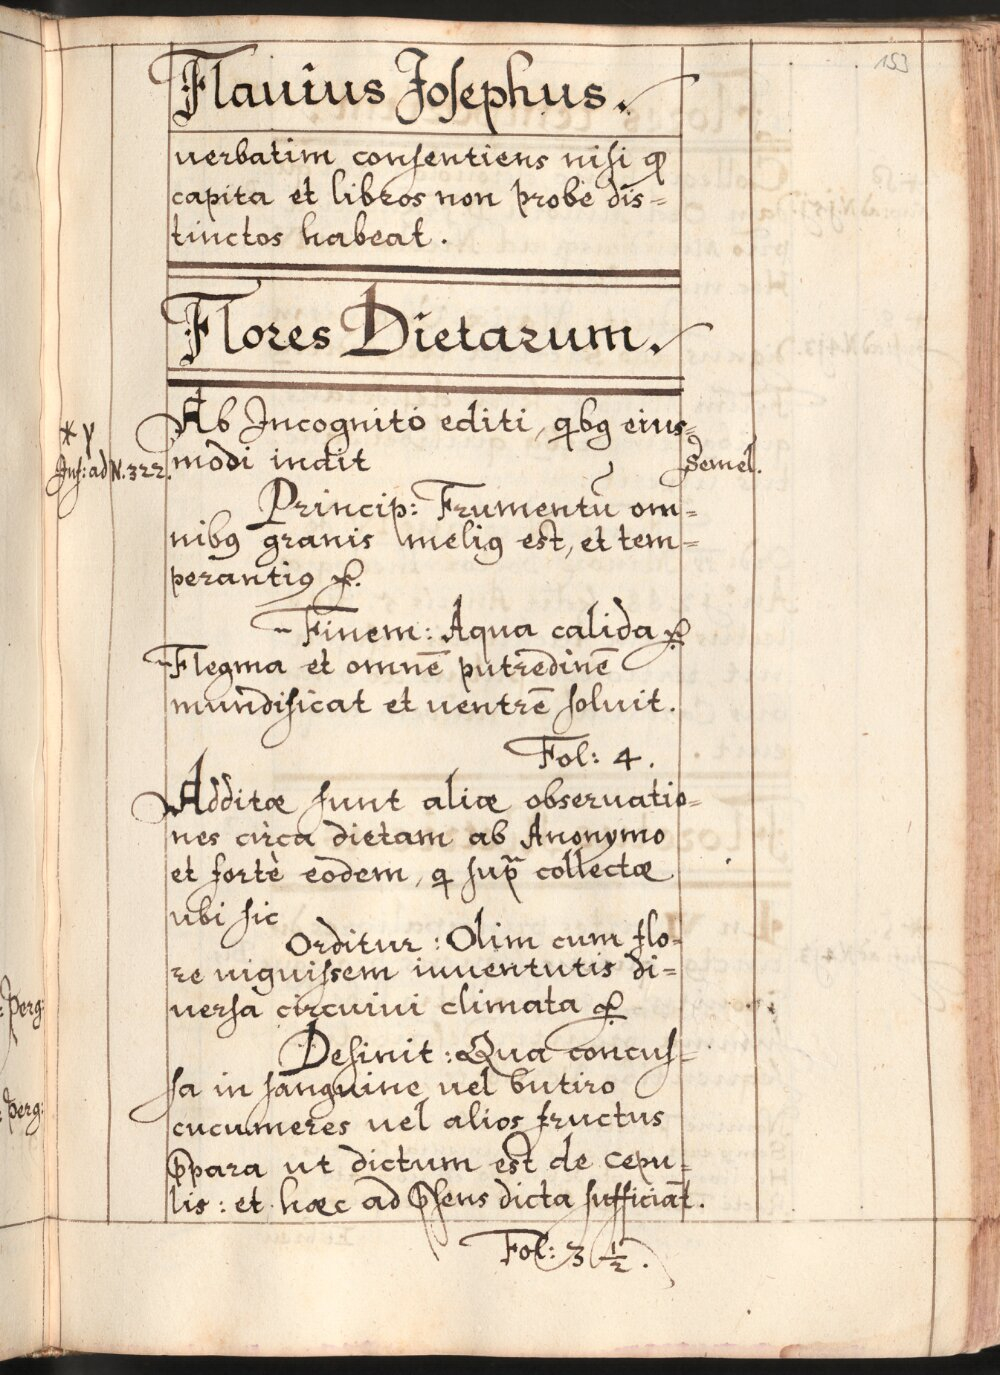 153
Flauius Josephus.
uerbatim consentiens nisi ꝙ
capita et libros non probè dis=
tinctos habeat.
Flores Dietarum.
Ab Incognito editi, qbꝯ eius=
* γ
Ins: ad N. 322.
modi indit
Semel.
Princip: Frumentū om=
nibꝯ granis meliꝯ est, et tem=
perantiꝯ ꝛc.
Finem: Aqua calida ꝛc
Flegma et omnē putredinē
mundificat et uentrē soluit.
Fol: 4.
Additæ sunt aliæ obseruatio=
nes circa dietam ab Anonymo
et fortè eodem, q sup̃ collectæ
ubi sic
Orditur: Olim cum flo=
re uiguissem iuuentutis di=
uersa circuiui climata ꝛc.
Desinit: Qua concus=
sa in sanguine uel butiro
cucumeres uel alios fructus
ꝑpara ut dictum est de cepu=
lis: et hæc ad ꝑsens dicta sufficiāt.
Fol: 3 1/2.
Perg:
Perg: